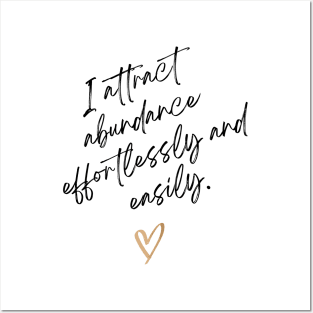 I attract
abundance
effortlessly and
easily.